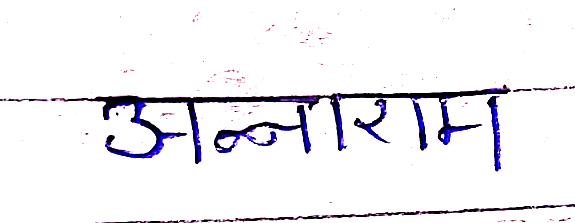 अन्नाराम